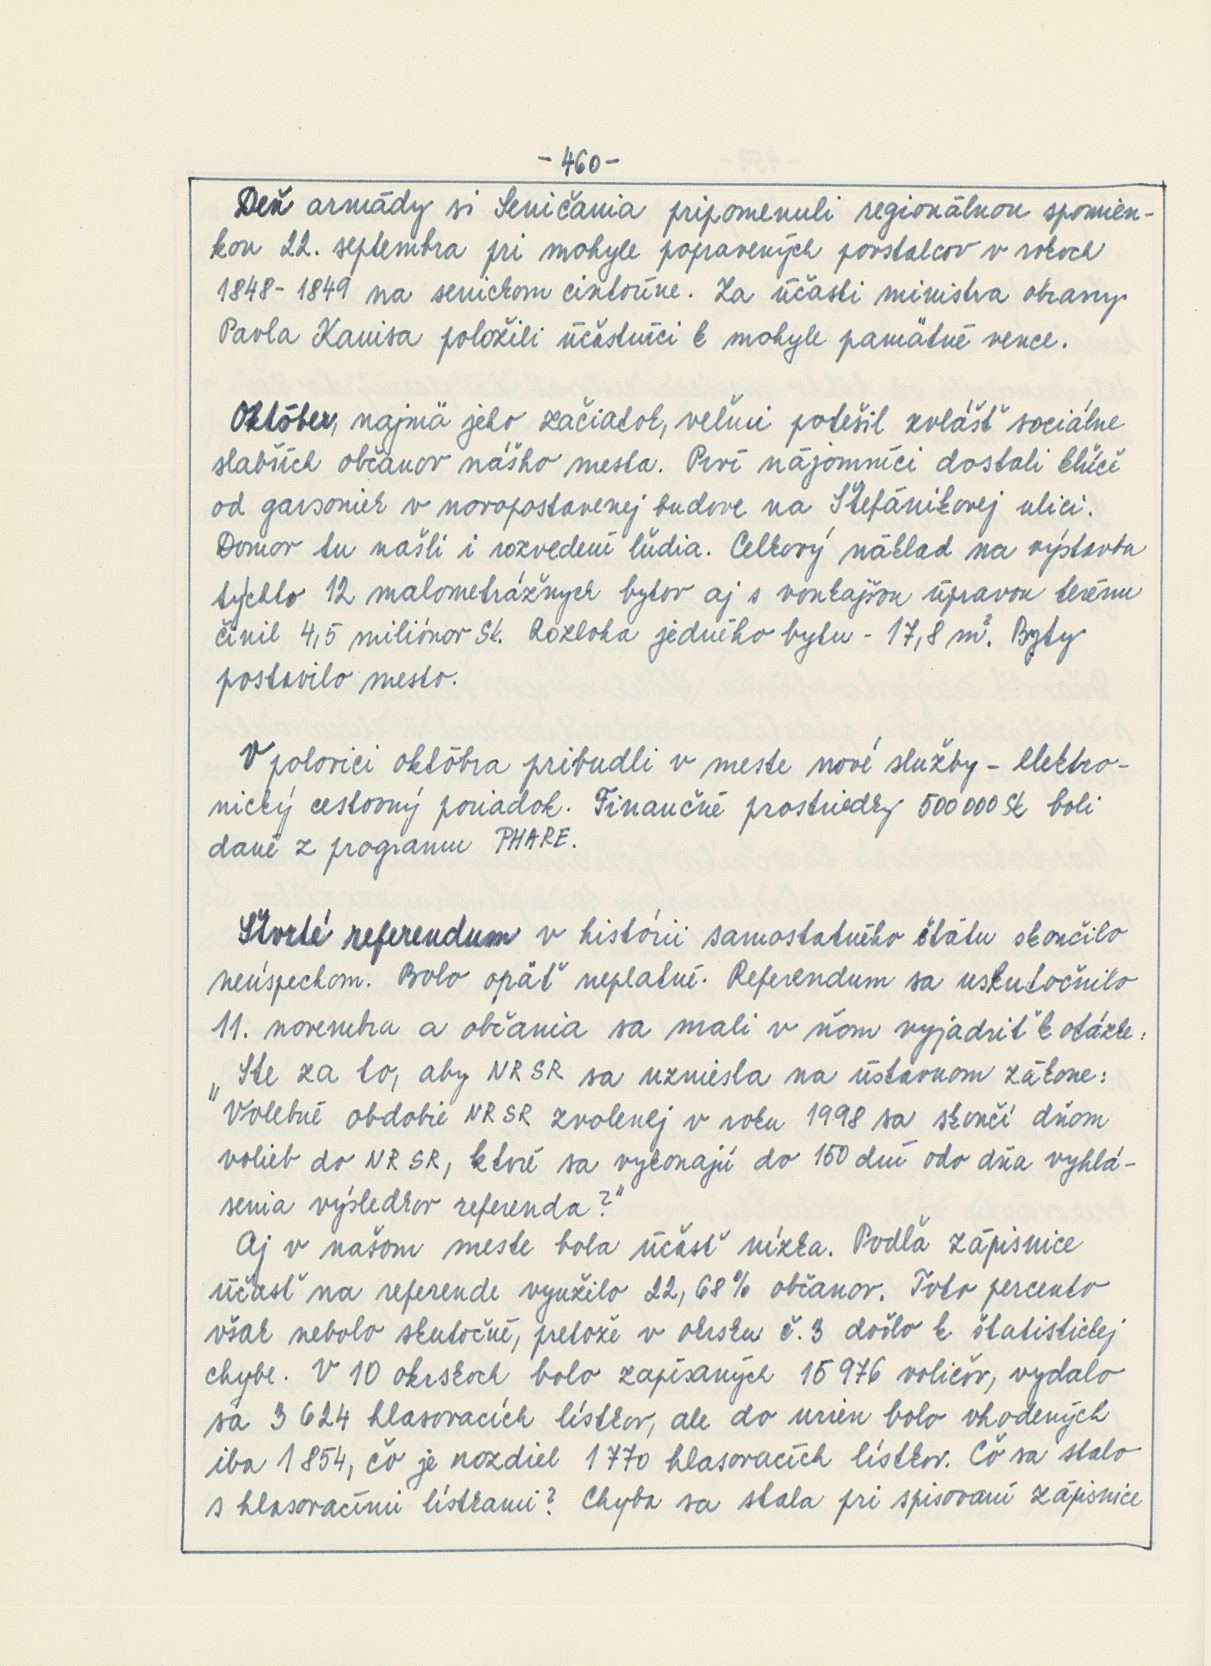 - 460 -
Deň armády si Seničania pripomenuli regionálnou spomien-
kou 22. septembra pri mohyle popravených povstalcov v rokoch
1848 - 1849 na senickom cintoríne. Za účasti ministra obrany
Pavla Kanisa položili účastníci k mohyle pamätné vence.
Október, najmä jeho začiatok, veľmi potešil zvlášť sociálne
slabších občanov nášho mesta. Prví nájomníci dostali kľúče
od garsoniek v novopostavenej budove na Štefánikovej ulici.
Domov tu našli i rozvedení ľudia. Celkový náklad na výstavbu
týchto 12 malometrážnych bytov aj s vonkajšou úpravou terénu
činil 4,5 miliónov Sk. Rozloha jedného bytu - 17,8 m². Byty
postavilo mesto.
V polovici októbra pribudli v meste nové služby - elektro-
nický cestovný poriadok. Finančné prostriedky 500 000 Sk boli
dané z programu PHARE.
Štvrté referendum v histórii samostatného štátu skončilo
neúspechom. Bolo opäť neplatné. Referendum sa uskutočnilo
11. novembra a občania sa mali v ňom vyjadriť k otázke:
„Ste za to, aby NR SR sa uzniesla na ústavnom zákone:
"Volebné obdobie NR SR zvolenej v roku 1998 sa skončí dňom
volieb do NR SR, ktoré sa vykonajú do 150 dní odo dňa vyhlá-
senia výsledkov referenda?"
Aj v našom meste bola účasť nízka. Podľa zápisnice
účasť na referende využilo 22,68 % občanov. Toto percento
však nebolo skutočné, pretože v okrsku č. 3 došlo k štatistickej
chybe. V 10 okrskoch bolo zapísaných 15 976 voličov, vydalo
sa 3 624 hlasovacích lístkov, ale do urien bolo vhodených
iba 1 854, čo je rozdiel 1 770 hlasovacích lístkov. Čo sa stalo
s hlasovacími lístkami? Chyba sa stala pri spisovaní zápisnice